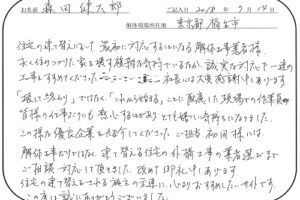 お名前 森田健太郎 ご記入日 2018年9月14日
解体現場所在地 東京都福生市
住宅の建て替えにおいて最初に対応することになる解体工事業者様。
永く住みつづけた家を壊す複雑な気持ちでいるが、誠実な対応で一連の
工事をすすめてくださった社長には大変感謝申し上げます
「壊して終わり」ではなく「これから始まる」ことに配慮した現場の作業員
皆様の仕事にも感心するがとても嬉しい気持ちになりました。
この様な優良企業を紹介してくださったご担当 和田様には、
解体工事だけではなく建て替える住宅の外構工事の業者選びまで
ご相談・対応して頂きました。改めて御礼申し上げます
住宅の建て替えをされる施主の元に、心よりおすすめしたいサイトです。
この度は誠にありがとうございました。